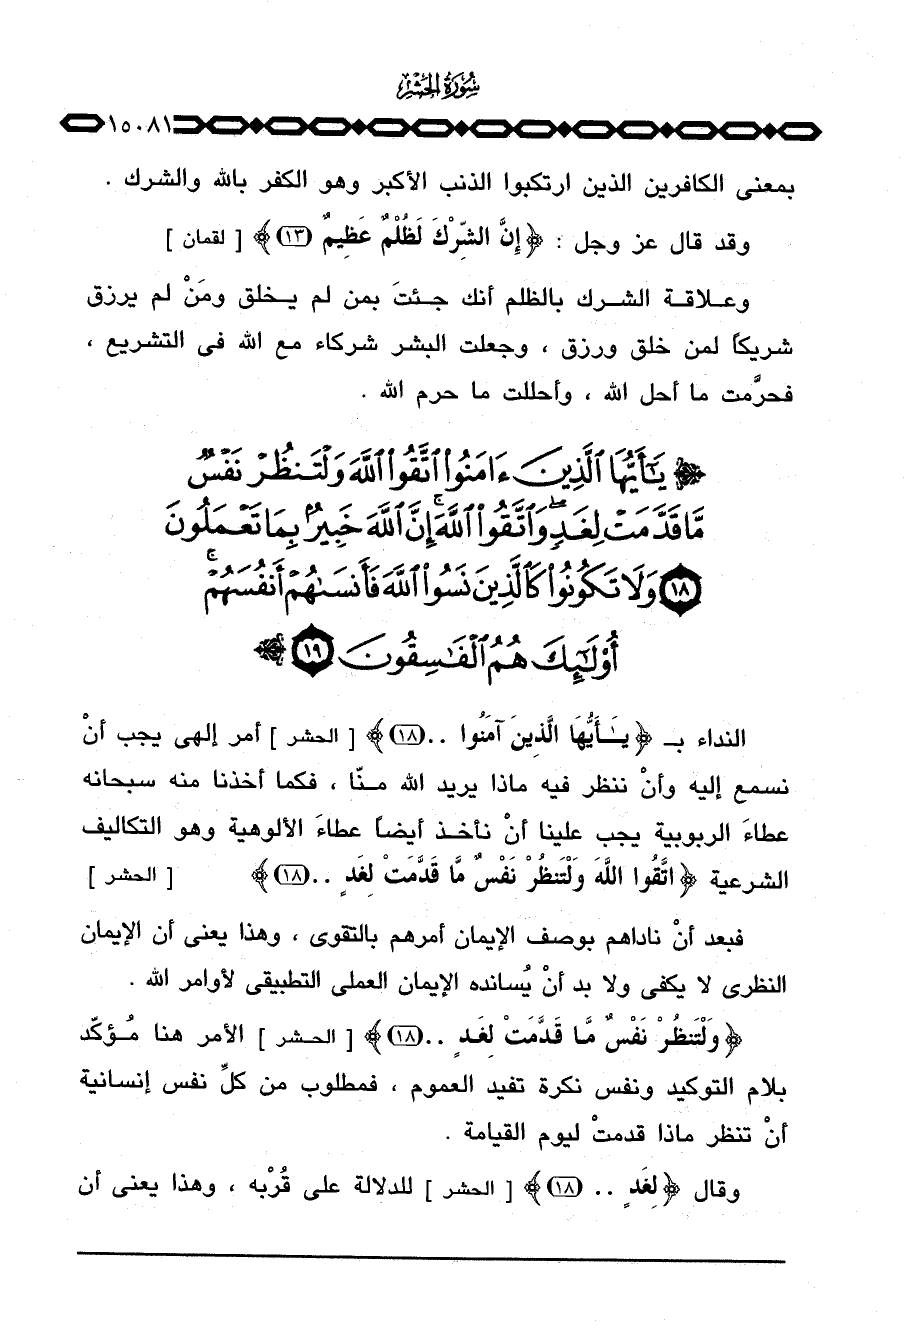 سُورَةُ الحَشْرِ
١٥٠٨١
بمعنى الكافرين الذين ارتكبوا الذنب الأكبر وهو الكفر بالله والشرك .
وقد قال عز وجل : ﴿ إِنَّ الشِّرْكَ لَظُلْمٌ عَظِيمٌ (١٣) ﴾ [ لقمان ]
وعلاقة الشرك بالظلم أنك جئتَ بمن لم يخلق ومَنْ لم يرزق
شريكاً لمن خلق ورزق ، وجعلت البشر شركاء مع الله فى التشريع ،
فحرَّمت ما أحل الله ، وأحللت ما حرم الله .
﴿ يَٰٓأَيُّهَا ٱلَّذِينَ ءَامَنُوا۟ ٱتَّقُوا۟ ٱللَّهَ وَلْتَنظُرْ نَفْسٌ
مَّا قَدَّمَتْ لِغَدٍ ۖ وَٱتَّقُوا۟ ٱللَّهَ ۚ إِنَّ ٱللَّهَ خَبِيرٌۢ بِمَا تَعْمَلُونَ
(١٨) وَلَا تَكُونُوا۟ كَٱلَّذِينَ نَسُوا۟ ٱللَّهَ فَأَنسَىٰهُمْ أَنفُسَهُمْ ۚ
أُو۟لَٰٓئِكَ هُمُ ٱلْفَٰسِقُونَ (١٩) ﴾
النداء بـ ﴿ يَٰأَيُّهَا الَّذِينَ آمَنُوا .. (١٨) ﴾ [ الحشر ] أمر إلهى يجب أنْ
نسمع إليه وأنْ ننظر فيه ماذا يريد الله منّا ، فكما أخذنا منه سبحانه
عطاءَ الربوبية يجب علينا أنْ نأخذ أيضاً عطاءَ الألوهية وهو التكاليف
الشرعية ﴿ اتَّقُوا اللَّهَ وَلْتَنظُرْ نَفْسٌ مَّا قَدَّمَتْ لِغَدٍ .. (١٨) ﴾ [ الحشر ]
فبعد أنْ ناداهم بوصف الإيمان أمرهم بالتقوى ، وهذا يعنى أن الإيمان
النظرى لا يكفى ولا بد أنْ يُسانده الإيمان العملى التطبيقى لأوامر الله .
﴿ وَلْتَنظُرْ نَفْسٌ مَّا قَدَّمَتْ لِغَدٍ .. (١٨) ﴾ [ الحشر ] الأمر هنا مُؤكّد
بلام التوكيد ونفس نكرة تفيد العموم ، فمطلوب من كلِّ نفس إنسانية
أنْ تنظر ماذا قدمتْ ليوم القيامة .
وقال ﴿ لِغَدٍ .. (١٨) ﴾ [ الحشر ] للدلالة على قُرْبه ، وهذا يعنى أن